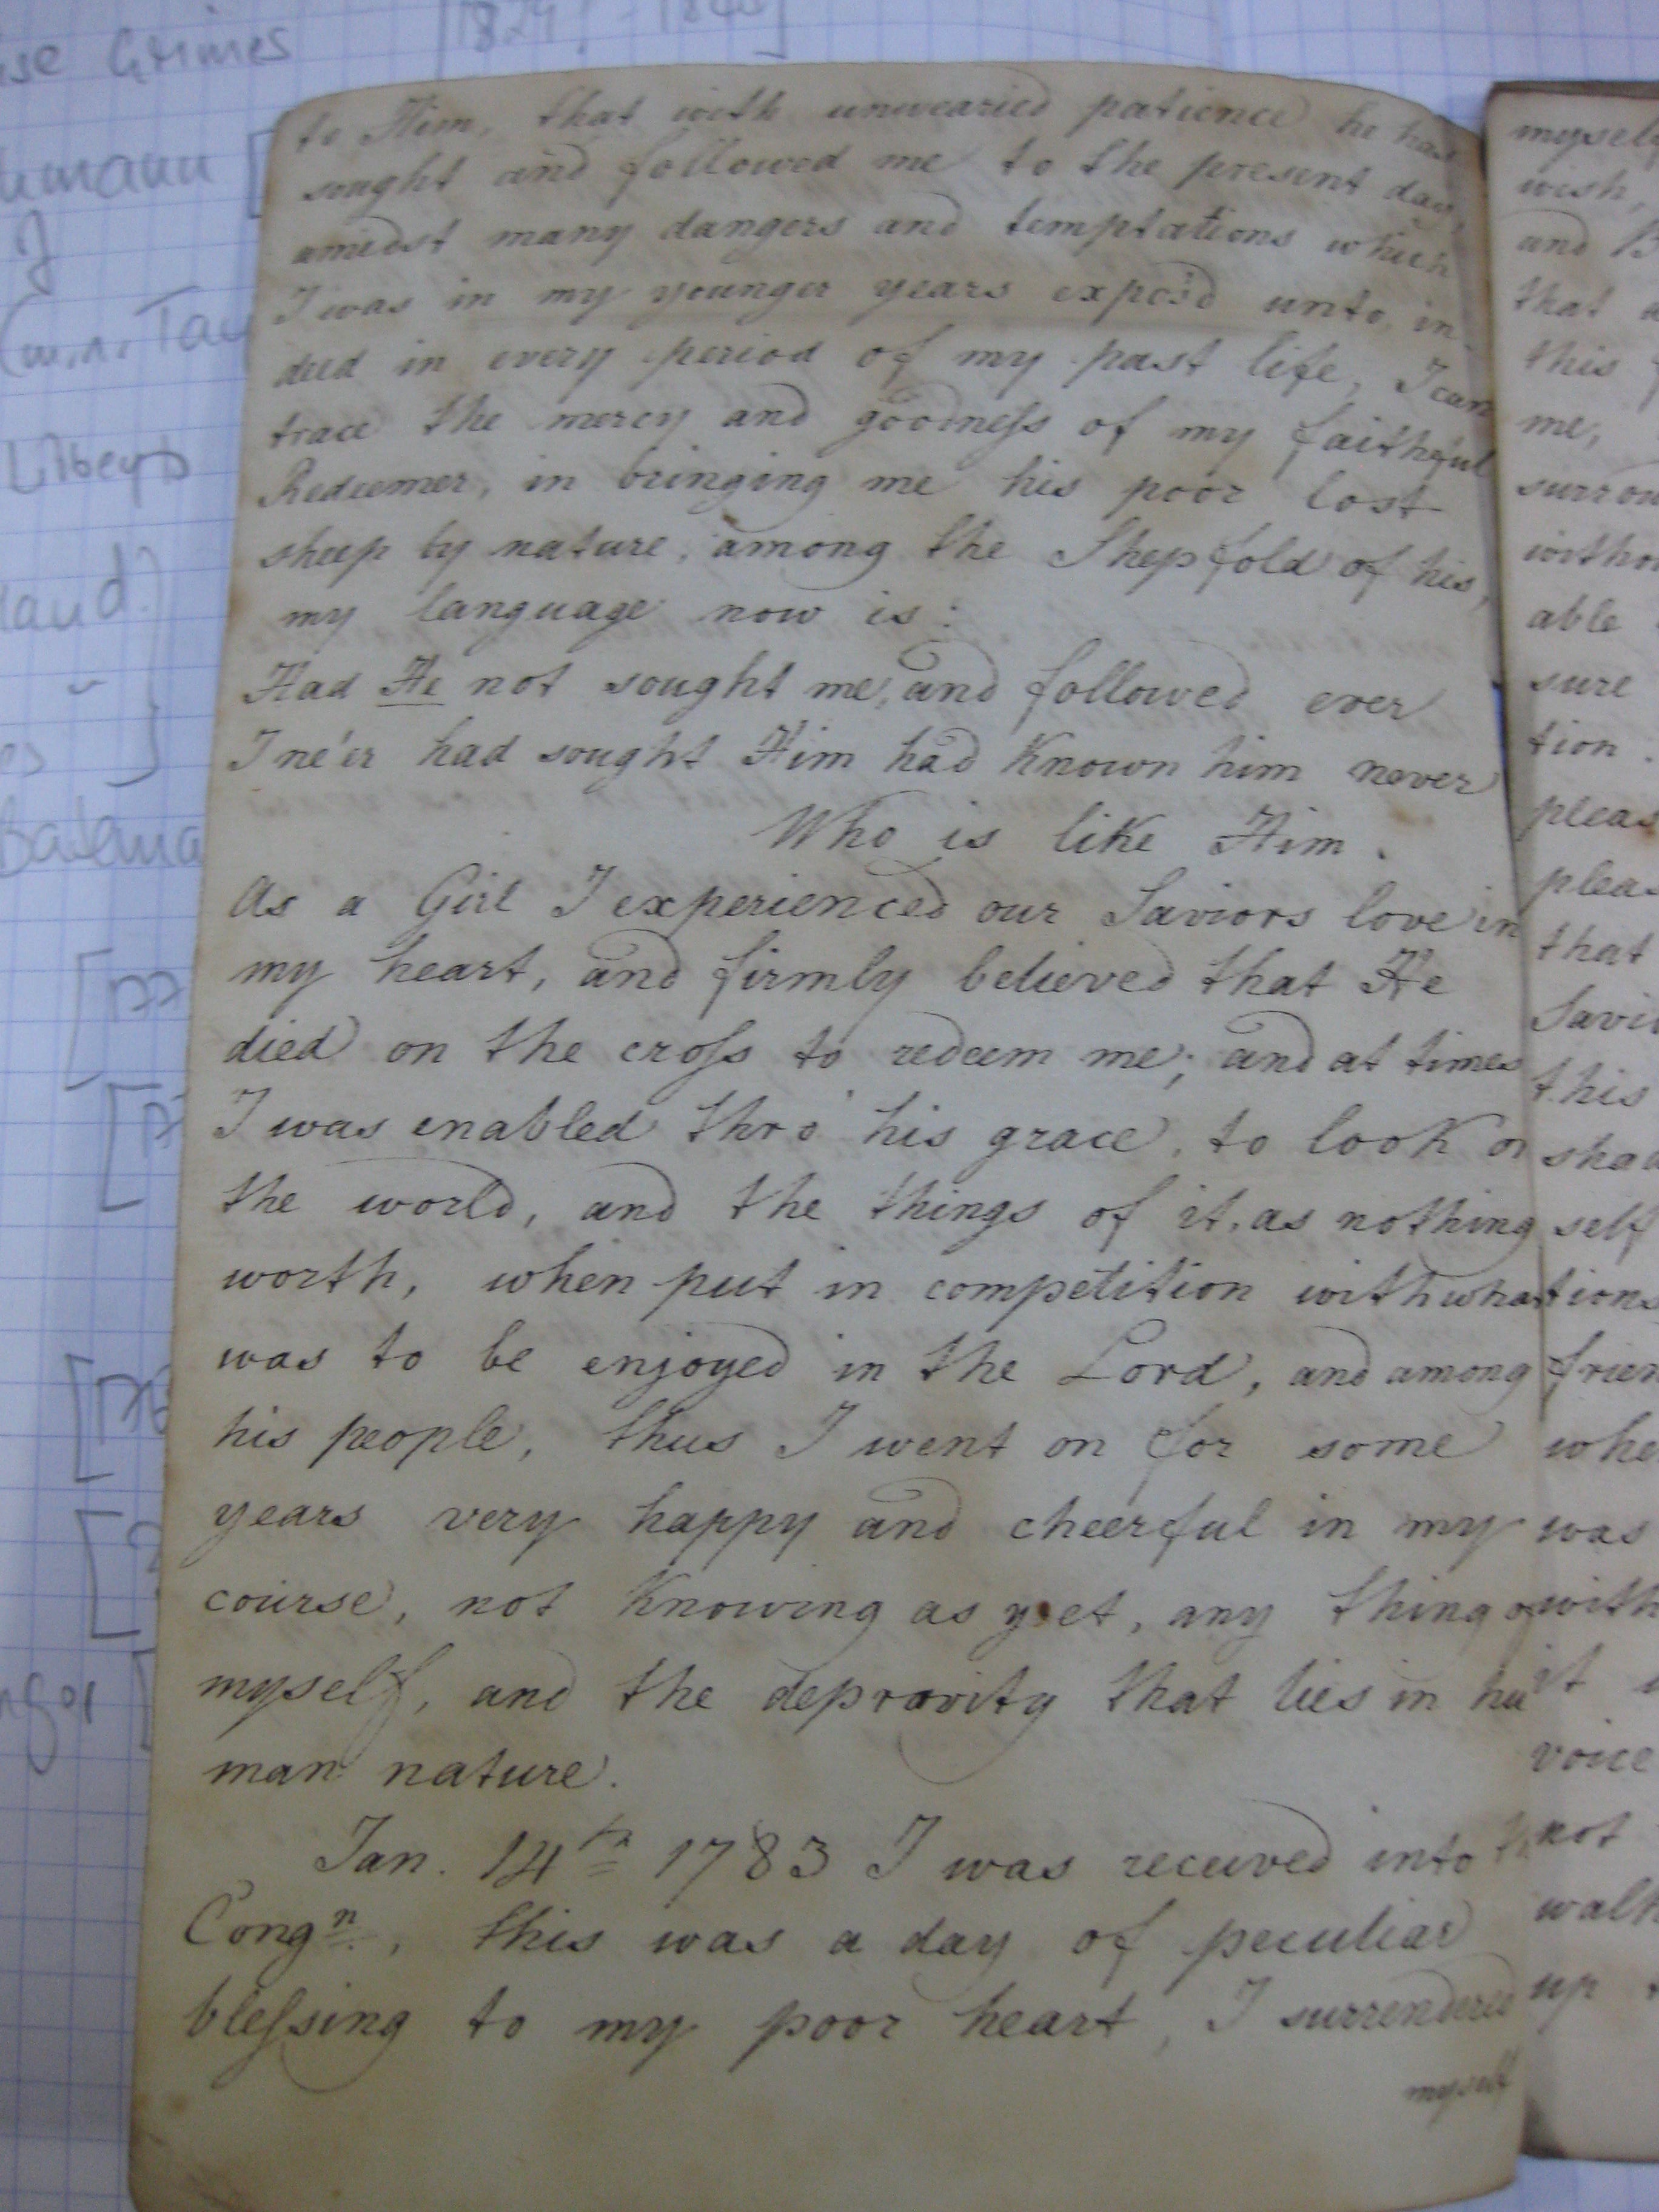 to Him, that with unwearied patience he has
sought and followed me to the present day,
amidst many dangers and temptations which
I was in my younger years expos'd unto, in-
deed in every period of my past life, I can
trace the mercy and goodneſs of my faithful
Redeemer, in bringing me his poor lost
sheep by nature, among the Shepfold of his,
my language now is:
Had He not sought me, and followed ever
I ne'er had sought Him had known him never
Who is like Him.
As a Girl I experienced our Saviors love in
my heart, and firmly believed that He
died on the croſs to redeem me; and at times
I was enabled thro' his grace, to look on
the world, and the things of it, as nothing
worth, when put in competition with what
was to be enjoyed in the Lord, and among
his people, thus I went on for some
years very happy and cheerful in my
course, not knowing as yet, any thing of
myself, and the depravity that lies in hu
man nature.
Jan. 14th 1783 I was received into
Congn., this was a day of peculiar
bleſsing to my poor heart, I surrendered
myself
myself
wish,
and B
that a
this f
me,
surrou
withou
able
sure
tion.
pleas
pleas
that
Savi
this
shad
self
tions
frien
whe
was
with
it
voice
not
walk
up
Grimes
Tau